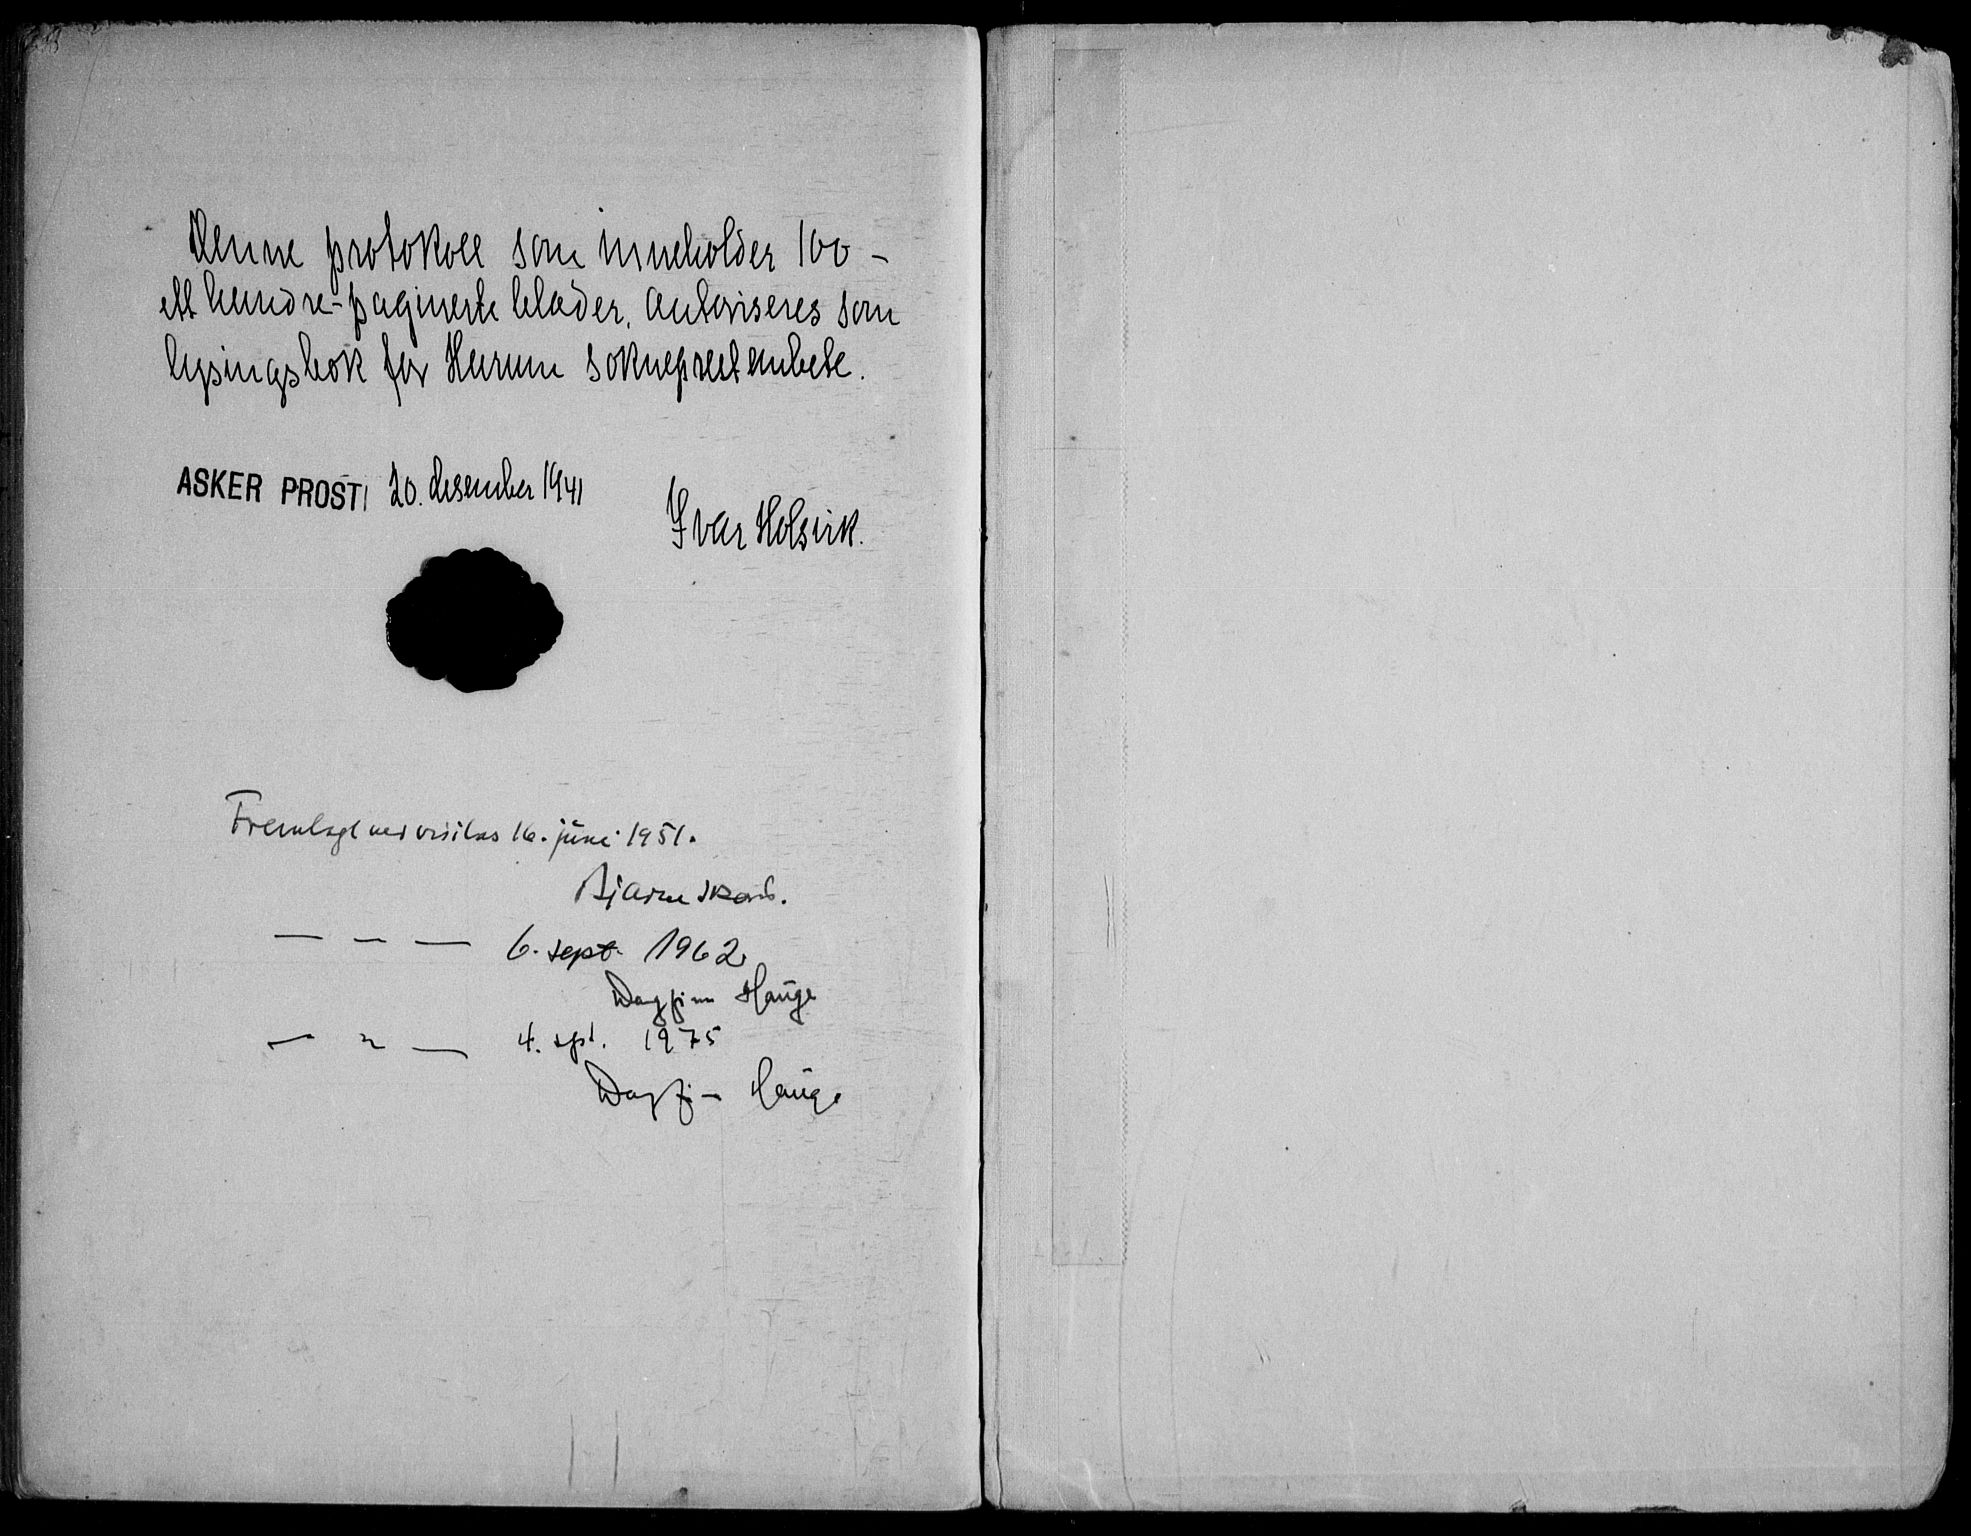 Denne protokoll som inneholder 100 -
ett hundre - paginerte blader, autoriseres som
lysingsbok for Hurum sokneprestembete.
ASKER PROSTI 20. desember 1941
Ivar Holsvik.
Fremlagt ved visitas 16. juni 1951.
Bjarne Skard.
— — — 6. sept. 1962
Dagfinn Hauge
— " — 4. sept. 1975
Dagfinn Hauge